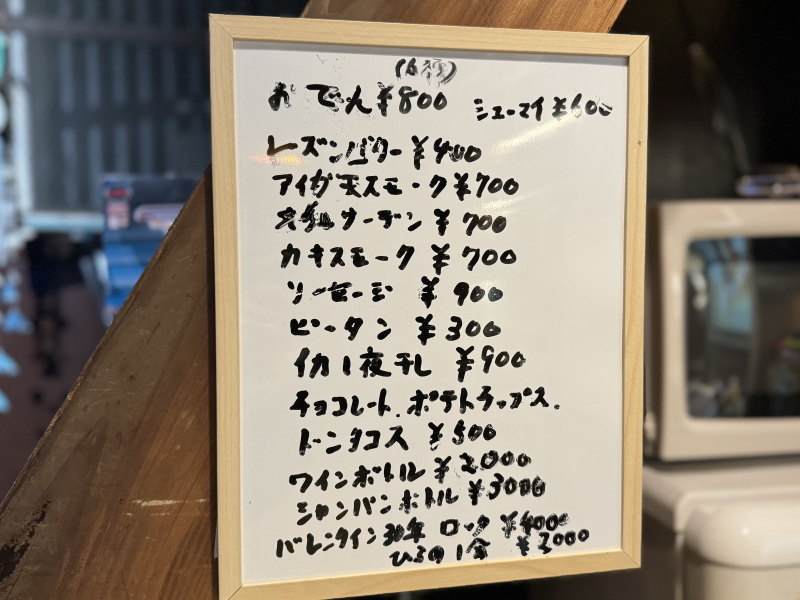 (6種)
おでん ¥800 シューマイ ¥600
レーズンバター ¥400
アイガモスモーク ¥700
サーデン ¥700
カキスモーク ¥700
ソーセージ ¥900
ピータン ¥300
イカ1夜干し ¥900
チョコレート、ポテトチップス、
ドンタコス ¥500
ワインボトル ¥2000
シャンパンボトル ¥3000
バレンタイン30年 ロック ¥4000
¥3000